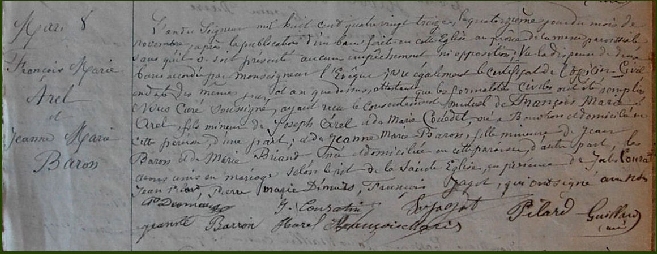 Mar. 8
François Marie
Arel
et
Jeanne Marie
Baron
L'an du Seigneur mil huit cent quatre vingt treize, le quatorzième jour du mois de
novembre après la publication d'un ban faite en cette Eglise au prône de la messe paroissiale
sans qu'il se soit présenté aucun empêchement ni opposition, Vu la dispense de deux
bans accordée par Monseigneur l'Evêque, Vu également le certificat de l'officier Civil
en date des mêmes jour et an que dessus, attestant que les formalités civiles ont été remplies
Nous Curé soussigné, ayant reçu le Consentement mutuel de François Marie
Arel, fils mineur de Joseph Arel et de Marie, né à et domicilié en
cette paroisse, d'une part; et de Jeanne Marie Baron, fille mineure de Jean
Baron et de Marie Briand née et domiciliée en cette paroisse, d'autre part, les
avons unis en mariage selon le rit de la Sainte Eglise, en présence de Jules
Jean, Pierre Marie, François, qui ont signé avec nous
Baron Harel Pilard Guillard